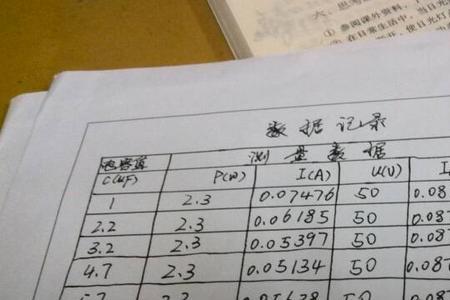 六、思考
① 参阅课外资料,
② 在日常生活中,当日光灯
使日光灯
数据记录
电容值 测量数据
C(μF) P(W) I(A) U(V)
1 2.3 0.07476 50 0.08
2.2 2.3 0.06185 50 0.087
3.2 2.3 0.05397 50 0.087
4.7 2.3 0.05134 50 0.08
2.3 50